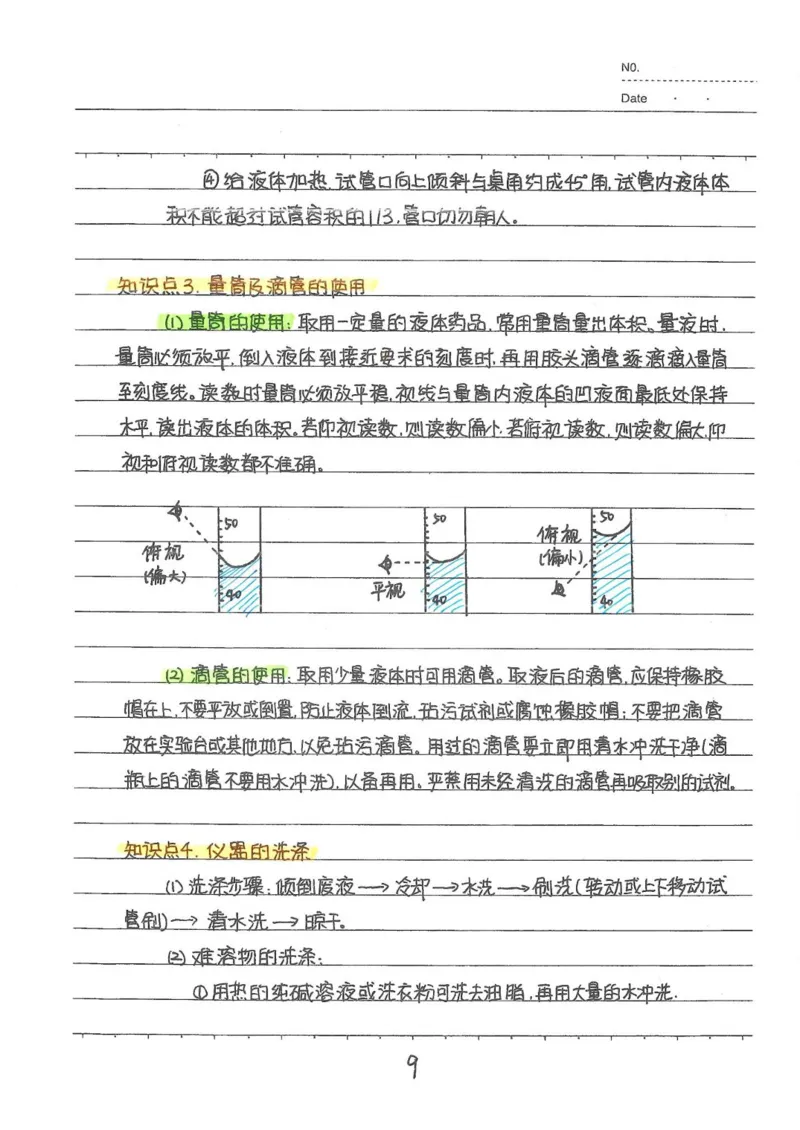 NO.
Date · ·
④给液体加热.试管口向上倾斜与桌角约成45°角,试管内液体体
积不能超过试管容积的1/3,管口切勿朝人。
知识点3.量筒及滴管的使用
(1)量筒的使用:取用一定量的液体药品,常用量筒量出体积。量液时,
量筒必须放平,倒入液体到接近要求的刻度时,再用胶头滴管逐滴滴入量筒
至刻度线。读数时量筒必须放平稳,视线与量筒内液体的凹液面最低处保持
水平,读出液体的体积。若仰视读数,则读数偏小.若俯视读数,则读数偏大,仰
视和俯视读数都不准确。
50
俯视
(偏大)
40
50
平视
40
50
俯视
(偏小)
40
(2)滴管的使用:取用少量液体时可用滴管。取液后的滴管,应保持橡胶
帽在上,不要平放或倒置,防止液体倒流,玷污试剂或腐蚀橡胶帽;不要把滴管
放在实验台或其他地方,以免玷污滴管。用过的滴管要立即用清水冲洗干净(滴
瓶上的滴管不要用水冲洗),以备再用。严禁用未经清洗的滴管再吸取别的试剂。
知识点4.仪器的洗涤
(1)洗涤步骤:倾倒废液→冷却→水洗→刷洗(转动或上下移动试
管刷)→清水洗→晾干。
(2)难溶物的洗涤:
①用热的纯碱溶液或洗衣粉可洗去油脂,再用大量的水冲洗.
9